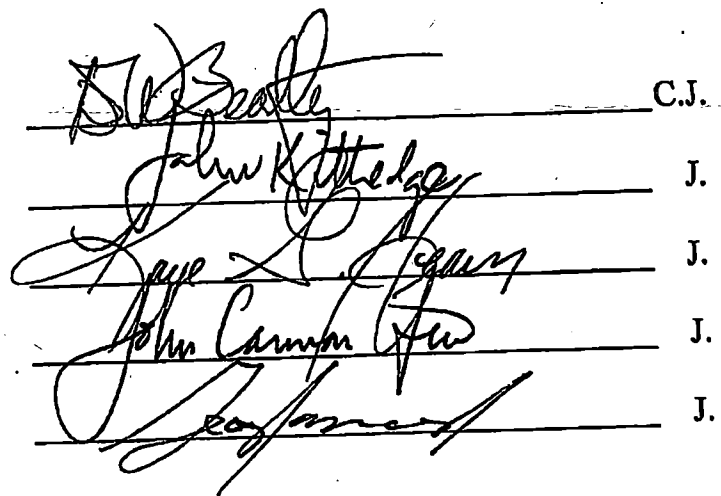 D W Beatty C.J.
John Kittredge J.
Kaye J.
John Cannon Few J.
J.